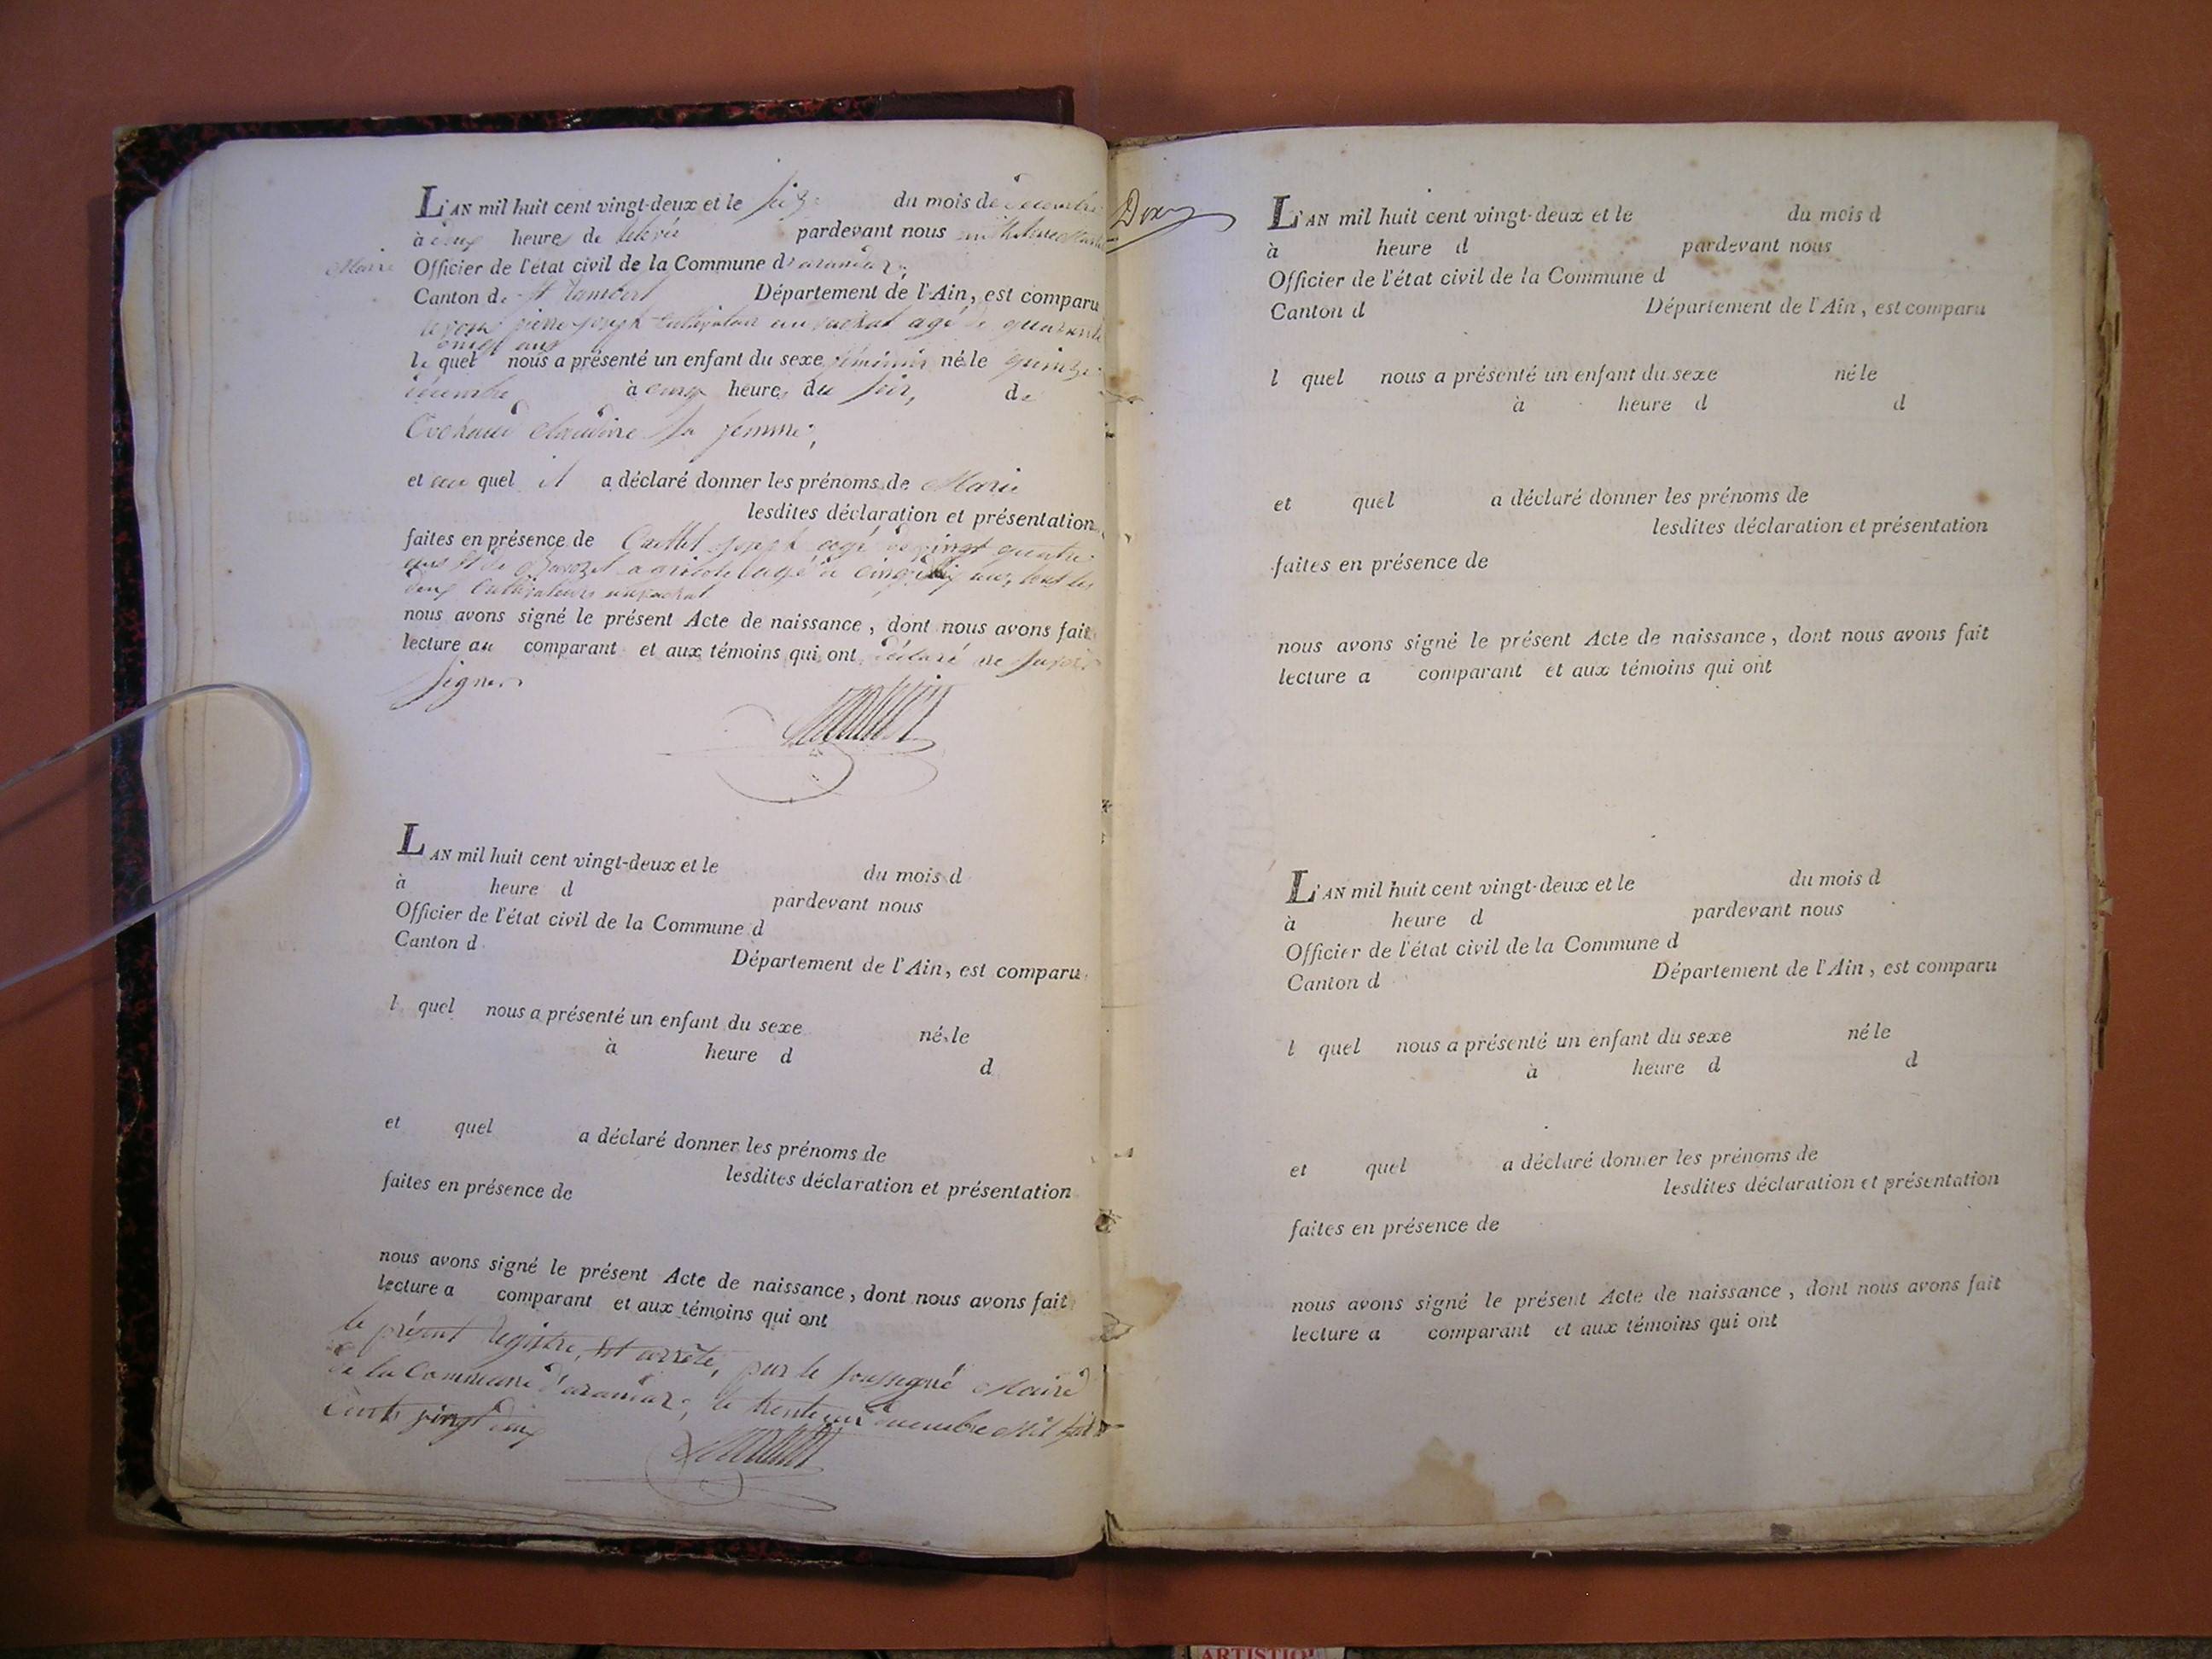 L'AN mil huit cent vingt-deux et le seize du mois de décembre
à deux heures de relevée pardevant nous
Maire Officier de l'état civil de la Commune d'arandaz,
Canton de St Rambert Département de l'Ain, est comparu
pierre joseph cultivateur agé de quarante
ans
le quel nous a présenté un enfant du sexe féminin né le quinze
décembre à cinq heures du soir, de
claudine sa femme,
et au quel il a déclaré donner les prénoms de Marie
lesdites déclaration et présentation
faites en présence de joseph agé de vingt quatre
ans et de agé de ans, tout les
deux cultivateurs
nous avons signé le présent Acte de naissance, dont nous avons fait
lecture au comparant et aux témoins qui ont déclaré ne savoir
signer
L'AN mil huit cent vingt-deux et le du mois d
à heure d pardevant nous
Officier de l'état civil de la Commune d
Canton d Département de l'Ain, est comparu
l quel nous a présenté un enfant du sexe né le
à heure d d
et quel a déclaré donner les prénoms de
lesdites déclaration et présentation
faites en présence de
nous avons signé le présent Acte de naissance, dont nous avons fait
lecture a comparant et aux témoins qui ont
le présent registre, est arrêté, par le soussigné Maire
de la Commune d'arandaz, le trente un décembre Mil huit
cents vingt deux
L'AN mil huit cent vingt-deux et le du mois d
à heure d pardevant nous
Officier de l'état civil de la Commune d
Canton d Département de l'Ain, est comparu
l quel nous a présenté un enfant du sexe né le
à heure d d
et quel a déclaré donner les prénoms de
lesdites déclaration et présentation
faites en présence de
nous avons signé le présent Acte de naissance, dont nous avons fait
lecture a comparant et aux témoins qui ont
L'AN mil huit cent vingt-deux et le du mois d
à heure d pardevant nous
Officier de l'état civil de la Commune d
Canton d Département de l'Ain, est comparu
l quel nous a présenté un enfant du sexe né le
à heure d d
et quel a déclaré donner les prénoms de
lesdites déclaration et présentation
faites en présence de
nous avons signé le présent Acte de naissance, dont nous avons fait
lecture a comparant et aux témoins qui ont